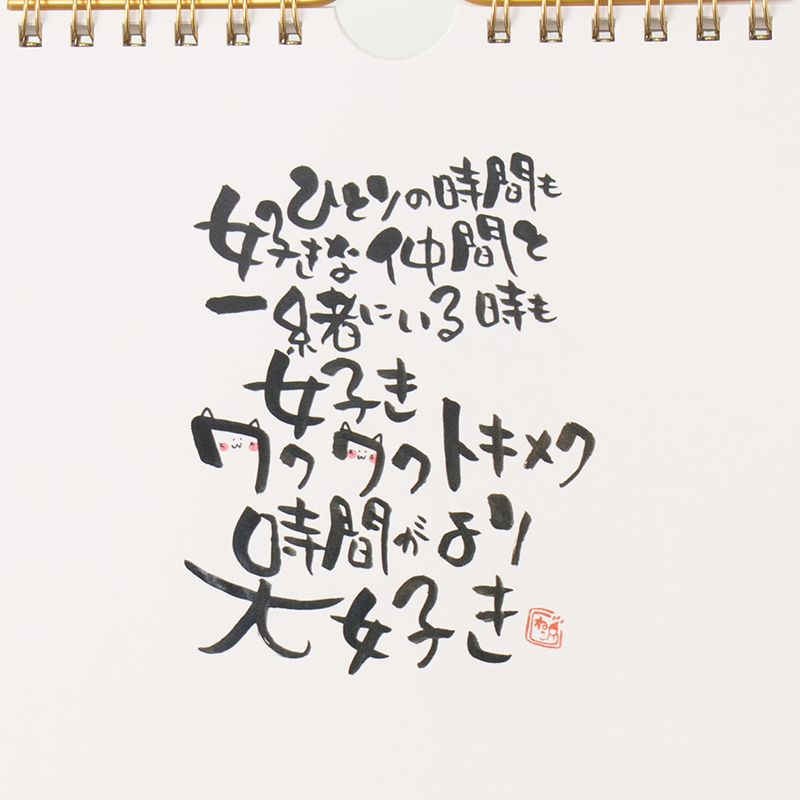 ひとりの時間も
好きな仲間と
一緒にいる時も
好き
ワクワクトキメク
時間がより
大好き